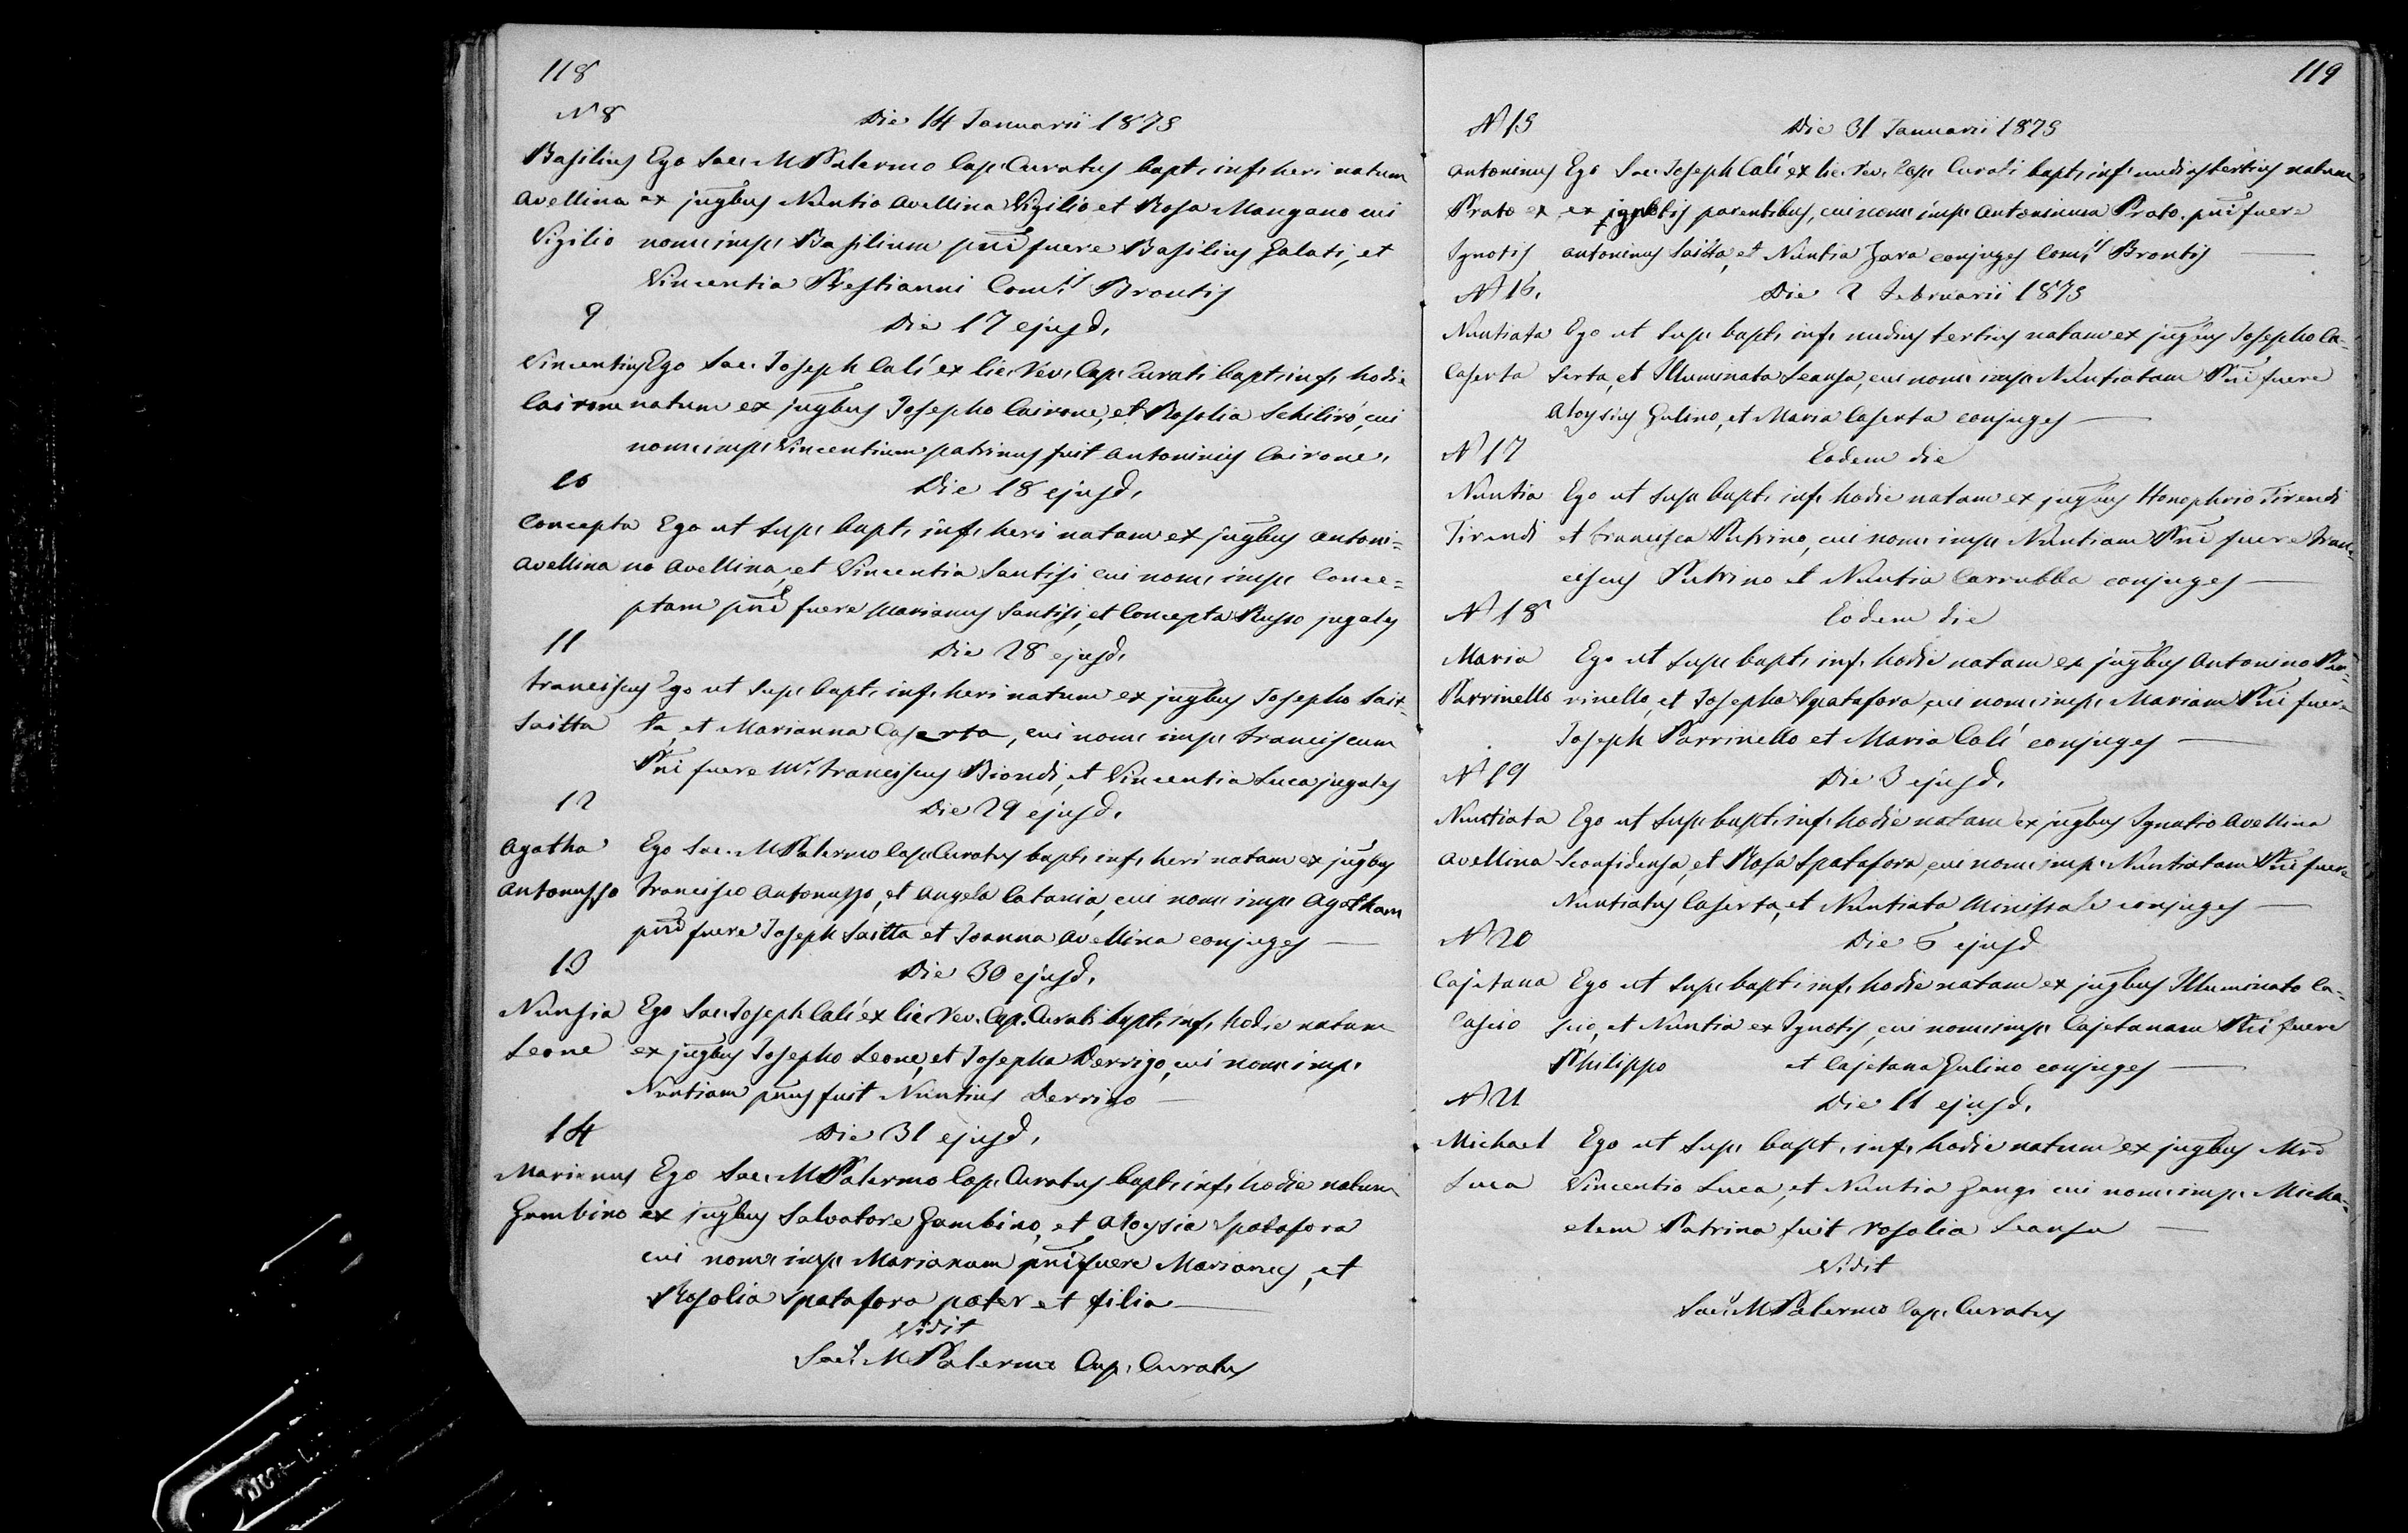 118
N 8 Die 14 Januarii 1875
Basilius Ego Sac. M Palermo Cap. Curatus bapt. inf. heri natum
Avellina ex jugbus Nuntio Avellina Vigilio et Rosa Mangano cui
Vigilio nom. imp. Basilium pni fuere Basilius Galati, et
Vincentia Prestianni Com.is Brontis
9 Die 17 ejusd.
Vincentius Ego Sac. Joseph Calí ex lic. Rev. Cap. Curati bapt. inf. hodie
Cairone natum ex jugbus Josepho Cairone, et Rosolia Schiliró, cui
nom. imp. Vincentium patrinus fuit Antoninus Cairone.
10 Die 18 ejusd.
Concepta Ego ut Sup. bapt. inf. heri natam ex jugbus Antoni=
Avellina no Avellina, et Vincentia Santisi cui nom. imp. Conce=
ptam pni fuere Marianus Santisi, et Concepta Russo jugales
11 Die 28 ejusd.
Franciscus Ego ut Sup. bapt. inf. heri natum ex jugbus Josepho Sait=
Saitta ta, et Marianna Caserta, cui nom. imp. Franciscum
Pni fuere Mr. Franciscus Biondi, et Vincentia Luca jugales
12 Die 29 ejusd.
Agatha Ego Sac. M Palermo Cap. Curatus bapt. inf. heri natam ex jugbus
Antonusso Francisco Antonusso, et Angela Catania, cui nom. imp. Agatham
pni fuere Joseph Saitta et Joanna Avellina conjuges
13 Die 30 ejusd.
Nunsia Ego Sac. Joseph Calí ex lic. Rev. Cap. Curati bapt. inf. hodie natam
Leone ex jugbus Josepho Leone, et Josepha Derrigo, cui nom. imp.
Nuntiam pnus fuit Nuntius Derrigo
14 Die 31 ejusd.
Marianus Ego Sac. M Palermo Cap. Curatus bapt. inf. hodie natum
Gambino ex jugbus Salvatore Gambino, et Aloysia Spatafora
cui nom. imp. Marianum pni fuere Marianus, et
Rosolia Spatafora pater et filia
Vidit
Sac. M Palermo Cap. Curatus
119
N 15 Die 31 Januarii 1875
Antoninus Ego Sac. Joseph Calí ex lic. Rev. Cap. Curati bapt. inf. nudius tertius natum
Prato ex ex ignotis parentibus, cui nom. imp. Antoninum Prato. pni fuere
Ignotis Antoninus Saitta, et Nuntia Zara conjuges Com.is Brontis
N 16. Die 2 Februarii 1875
Nuntiata Ego ut Sup. bapt. inf. nudius tertius natam ex jugbus Josepho Ca=
Caserta serta, et Illuminata Scansa, cui nom. imp. Nuntiatam Pni fuere
Aloysius Gulino, et Maria Caserta conjuges
N 17 Eodem die
Nuntia Ego ut Sup. bapt. inf. hodie natam ex jugbus Honophrio Tirendi
Tirendi et Francisca Putrino, cui nom. imp. Nuntiam Pni fuere Fran=
ciscus Putrino et Nuntia Carrubba conjuges
N 18 Eodem die
Maria Ego ut Sup. bapt. inf. hodie natam ex jugbus Antonino Par=
Parrinello rinello, et Josepha Spatafora, cui nom. imp. Mariam Pni fuere
Joseph Parrinello et Maria Calí conjuges
N 19 Die 3 ejusd.
Nuntiata Ego ut Sup. bapt. inf. hodie natam ex jugbus Ignatio Avellina
Avellina Sconfidensa, et Rosa Spatafora, cui nom. imp. Nuntiatam Pni fuere
Nuntiatus Caserta, et Nuntiata Minissale conjuges
N 20 Die 6 ejusd
Cajetana Ego ut Sup. bapt. inf. hodie natam ex jugbus Illuminato Ca=
Cascio scio, et Nuntia ex Ignotis, cui nom. imp. Cajetanam Pni fuere
Philippo et Cajetana Gulino conjuges
N 21 Die 11 ejusd.
Michael Ego ut Sup. bapt. inf. hodie natum ex jugbus Mro
Luca Vincentio Luca, et Nuntia Gangi cui nom. imp. Micha=
elem Patrina fuit Rosalia Scansa
Vidit
Sac. M Palermo Cap. Curatus